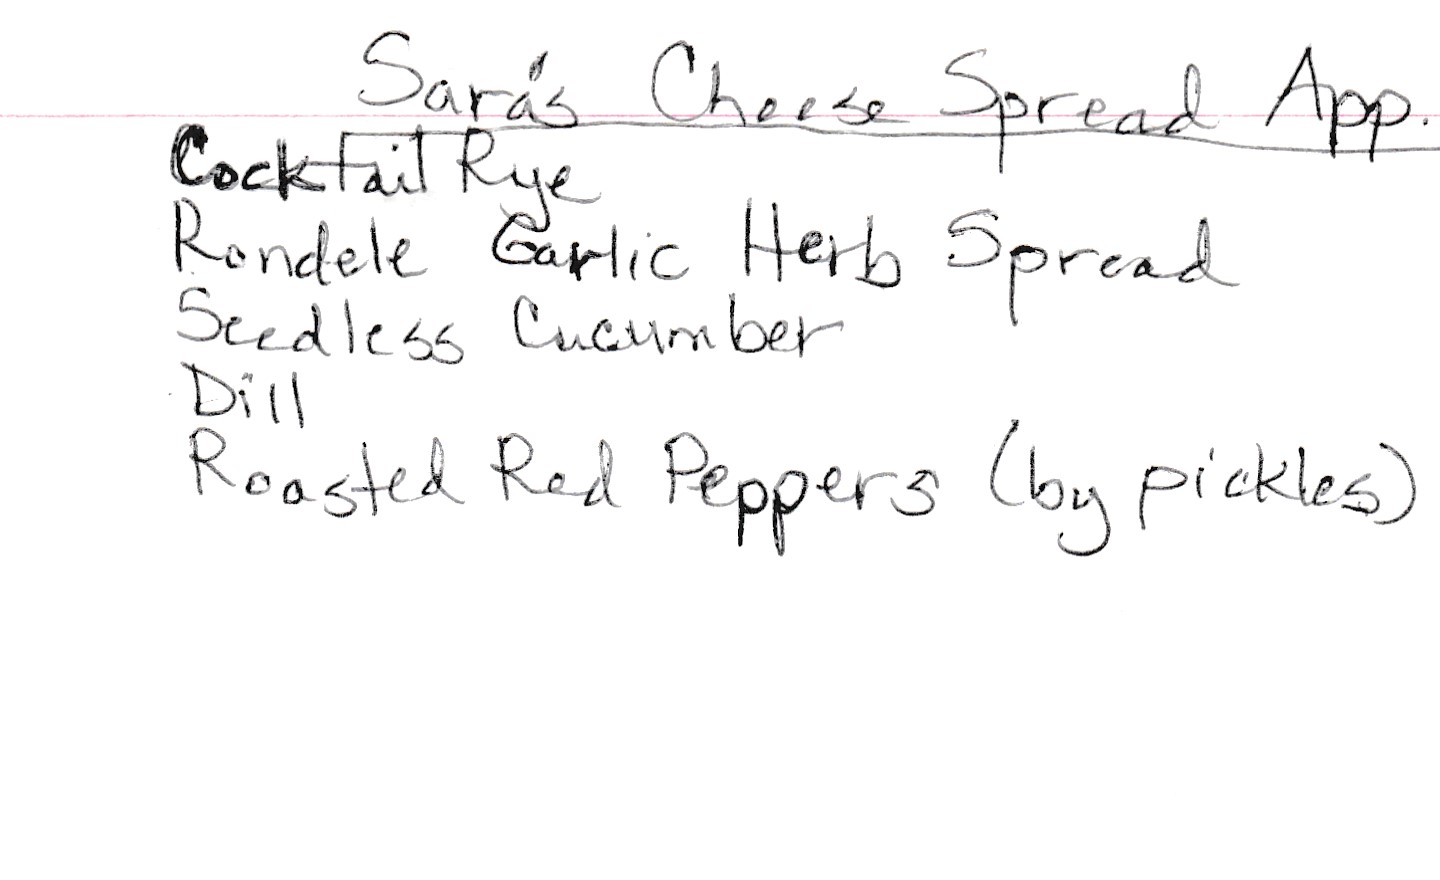 Sara's Cheese Spread App.
Cocktail Rye
Rondele Garlic Herb Spread
Seedless Cucumber
Dill
Roasted Red Peppers (by pickles)